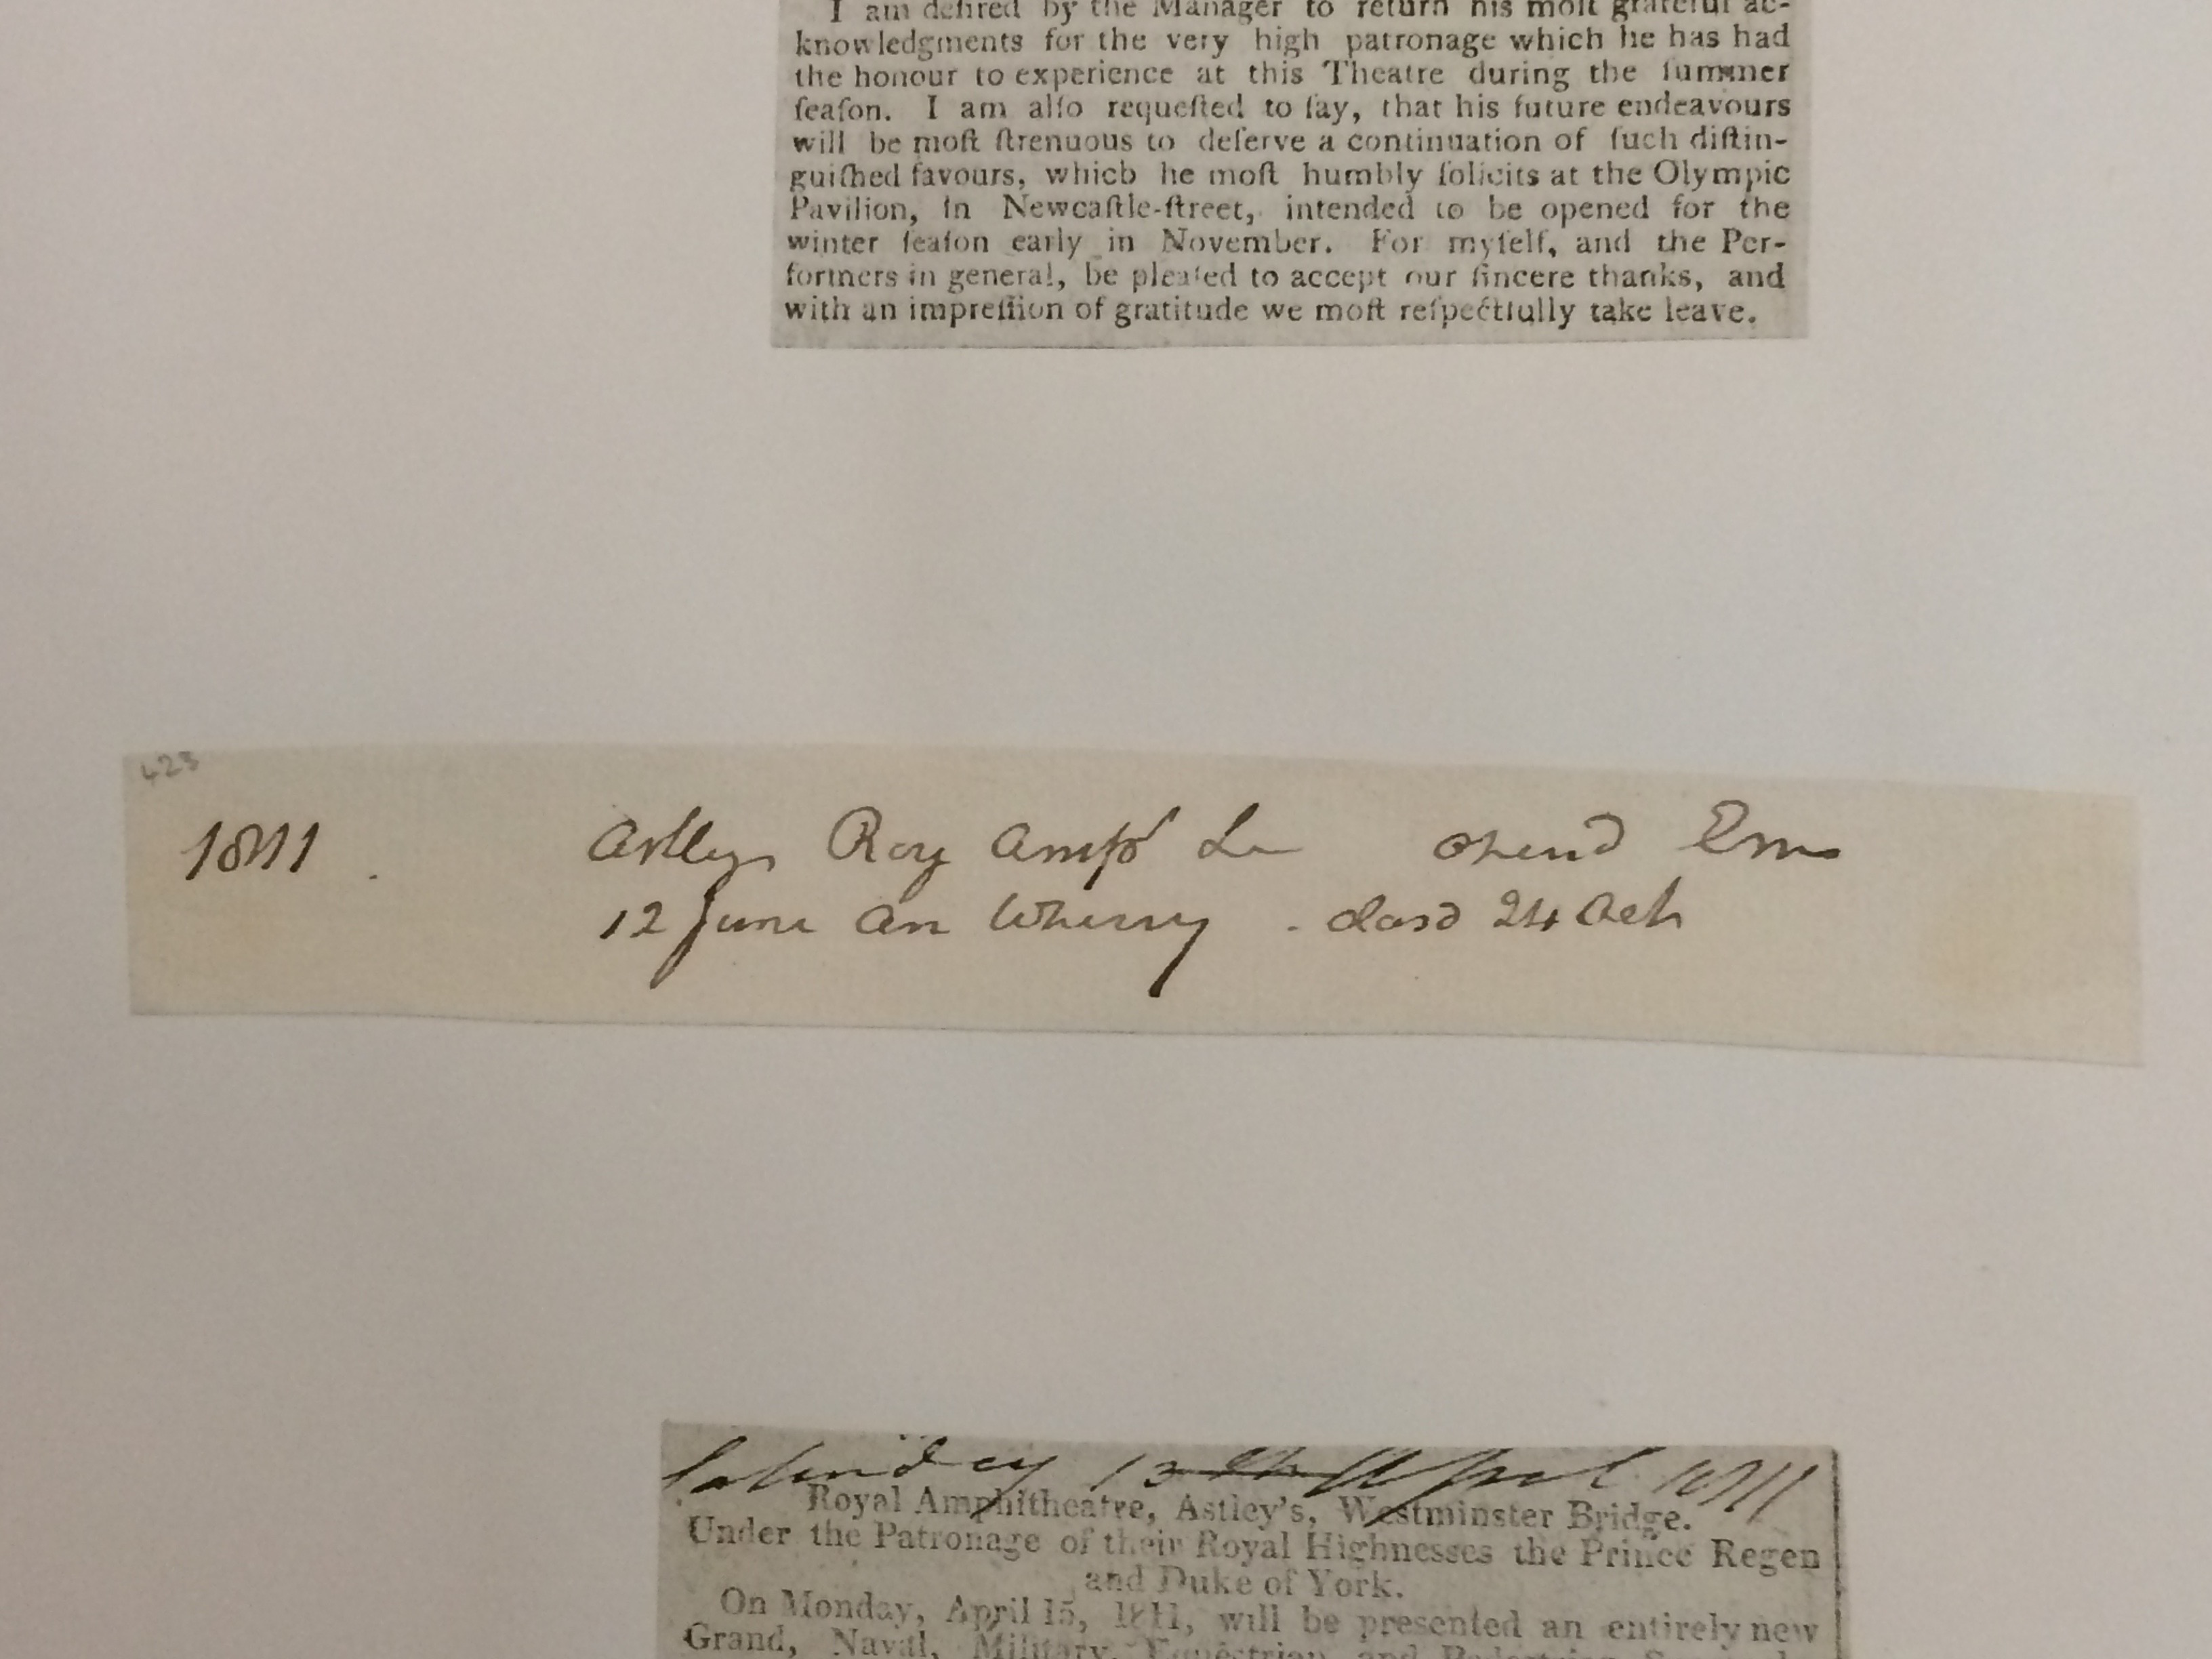 I am deſired by the Manager to return his moſt grateful ac-
knowledgments for the very high patronage which he has had
the honour to experience at this Theatre during the ſummer
ſeaſon. I am alſo requeſted to ſay, that his future endeavours
will be moſt ſtrenuous to deſerve a continuation of ſuch diſtin-
guiſhed favours, which he moſt humbly ſolicits at the Olympic
Pavilion, in Newcaſtle-ſtreet, intended to be opened for the
winter ſeaſon early in November. For myſelf, and the Per-
formers in general, be pleaſed to accept our ſincere thanks, and
with an impreſſion of gratitude we moſt reſpectfully take leave.
423
1811. Astleys Roy Amp
12 June an Wherry. closd 24 Oct
Saturday 13th April 1811
Royal Amphitheatre, Astley's, Westminster Bridge.
Under the Patronage of their Royal Highnesses the Prince Regen
and Duke of York.
On Monday, April 15, 1811, will be presented an entirely new
Grand, Naval, Military, Equestrian, and Pedestrian